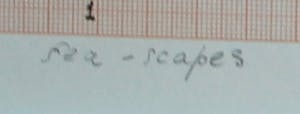 1
sea - scapes